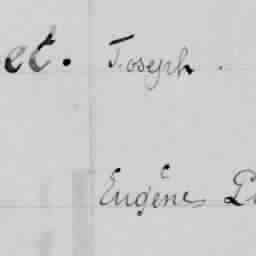 et. Joseph.
Eugène